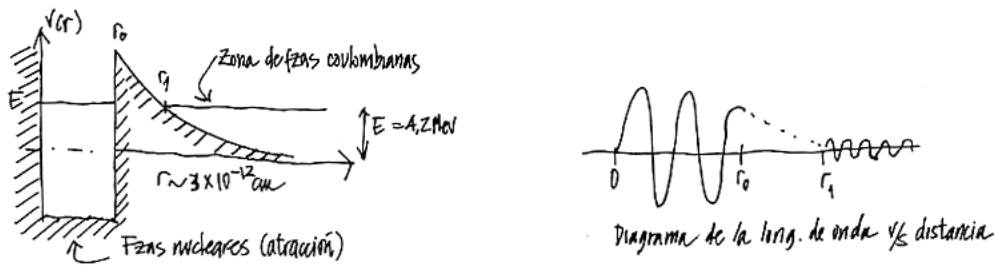 V(r)
r₀
Zona de fzas coulombianas
r₁
E
E = 4,2 MeV
r ~ 3 x 10⁻¹² cm
Fzas nucleares (atracción)
0
r₀
r₁
Diagrama de la long. de onda v/s distancia